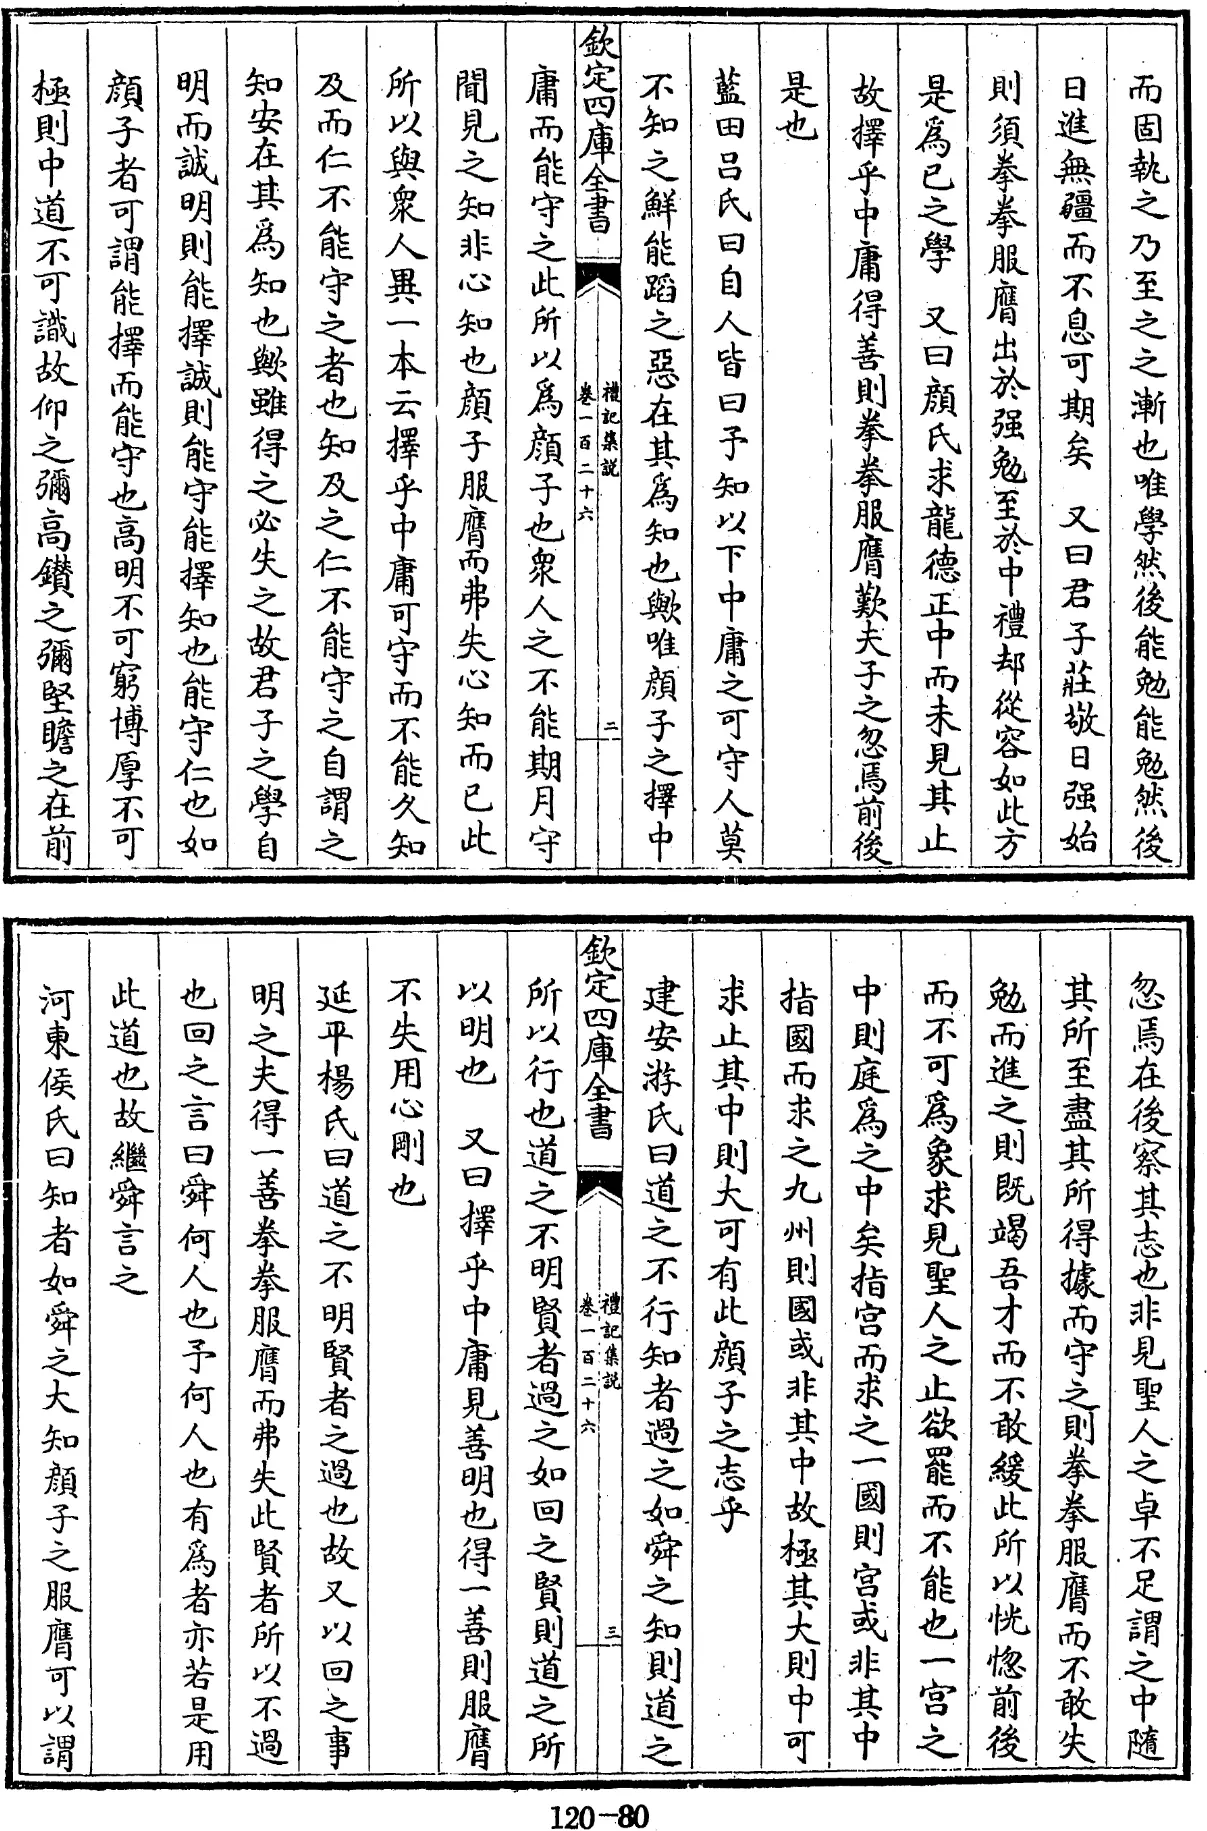 而固執之乃至之之漸也唯學然後能勉能勉然後
日進無疆而不息可期矣　又曰君子莊敬日强始
則須拳拳服膺出於强勉至於中禮却從容如此方
是為已之學　又曰顔氏求龍德正中而未見其止
故擇乎中庸得善則拳拳服膺歎夫子之忽焉前後
是也
藍田吕氏曰自人皆曰予知以下中庸之可守人莫
不知之鮮能蹈之惡在其為知也歟唯顔子之擇中
欽定四庫全書
禮記集説
卷一百二十六
二
庸而能守之此所以為顔子也衆人之不能期月守
聞見之知非心知也顔子服膺而弗失心知而已此
所以與衆人異一本云擇乎中庸可守而不能久知
及而仁不能守之者也知及之仁不能守之自謂之
知安在其為知也歟雖得之必失之故君子之學自
明而誠明則能擇誠則能守能擇知也能守仁也如
顔子者可謂能擇而能守也高明不可窮博厚不可
極則中道不可識故仰之彌高鑚之彌堅瞻之在前
忽焉在後察其志也非見聖人之卓不足謂之中隨
其所至盡其所得據而守之則拳拳服膺而不敢失
勉而進之則既竭吾才而不敢緩此所以恍惚前後
而不可為象求見聖人之止欲罷而不能也一宫之
中則庭為之中矣指宫而求之一國則宫或非其中
指國而求之九州則國或非其中故極其大則中可
求止其中則大可有此顔子之志乎
建安游氏曰道之不行知者過之如舜之知則道之
欽定四庫全書
禮記集説
卷一百二十六
三
所以行也道之不明賢者過之如回之賢則道之所
以明也　又曰擇乎中庸見善明也得一善則服膺
不失用心剛也
延平楊氏曰道之不明賢者之過也故又以回之事
明之夫得一善拳拳服膺而弗失此賢者所以不過
也回之言曰舜何人也予何人也有為者亦若是用
此道也故繼舜言之
河東侯氏曰知者如舜之大知顔子之服膺可以謂
120-80